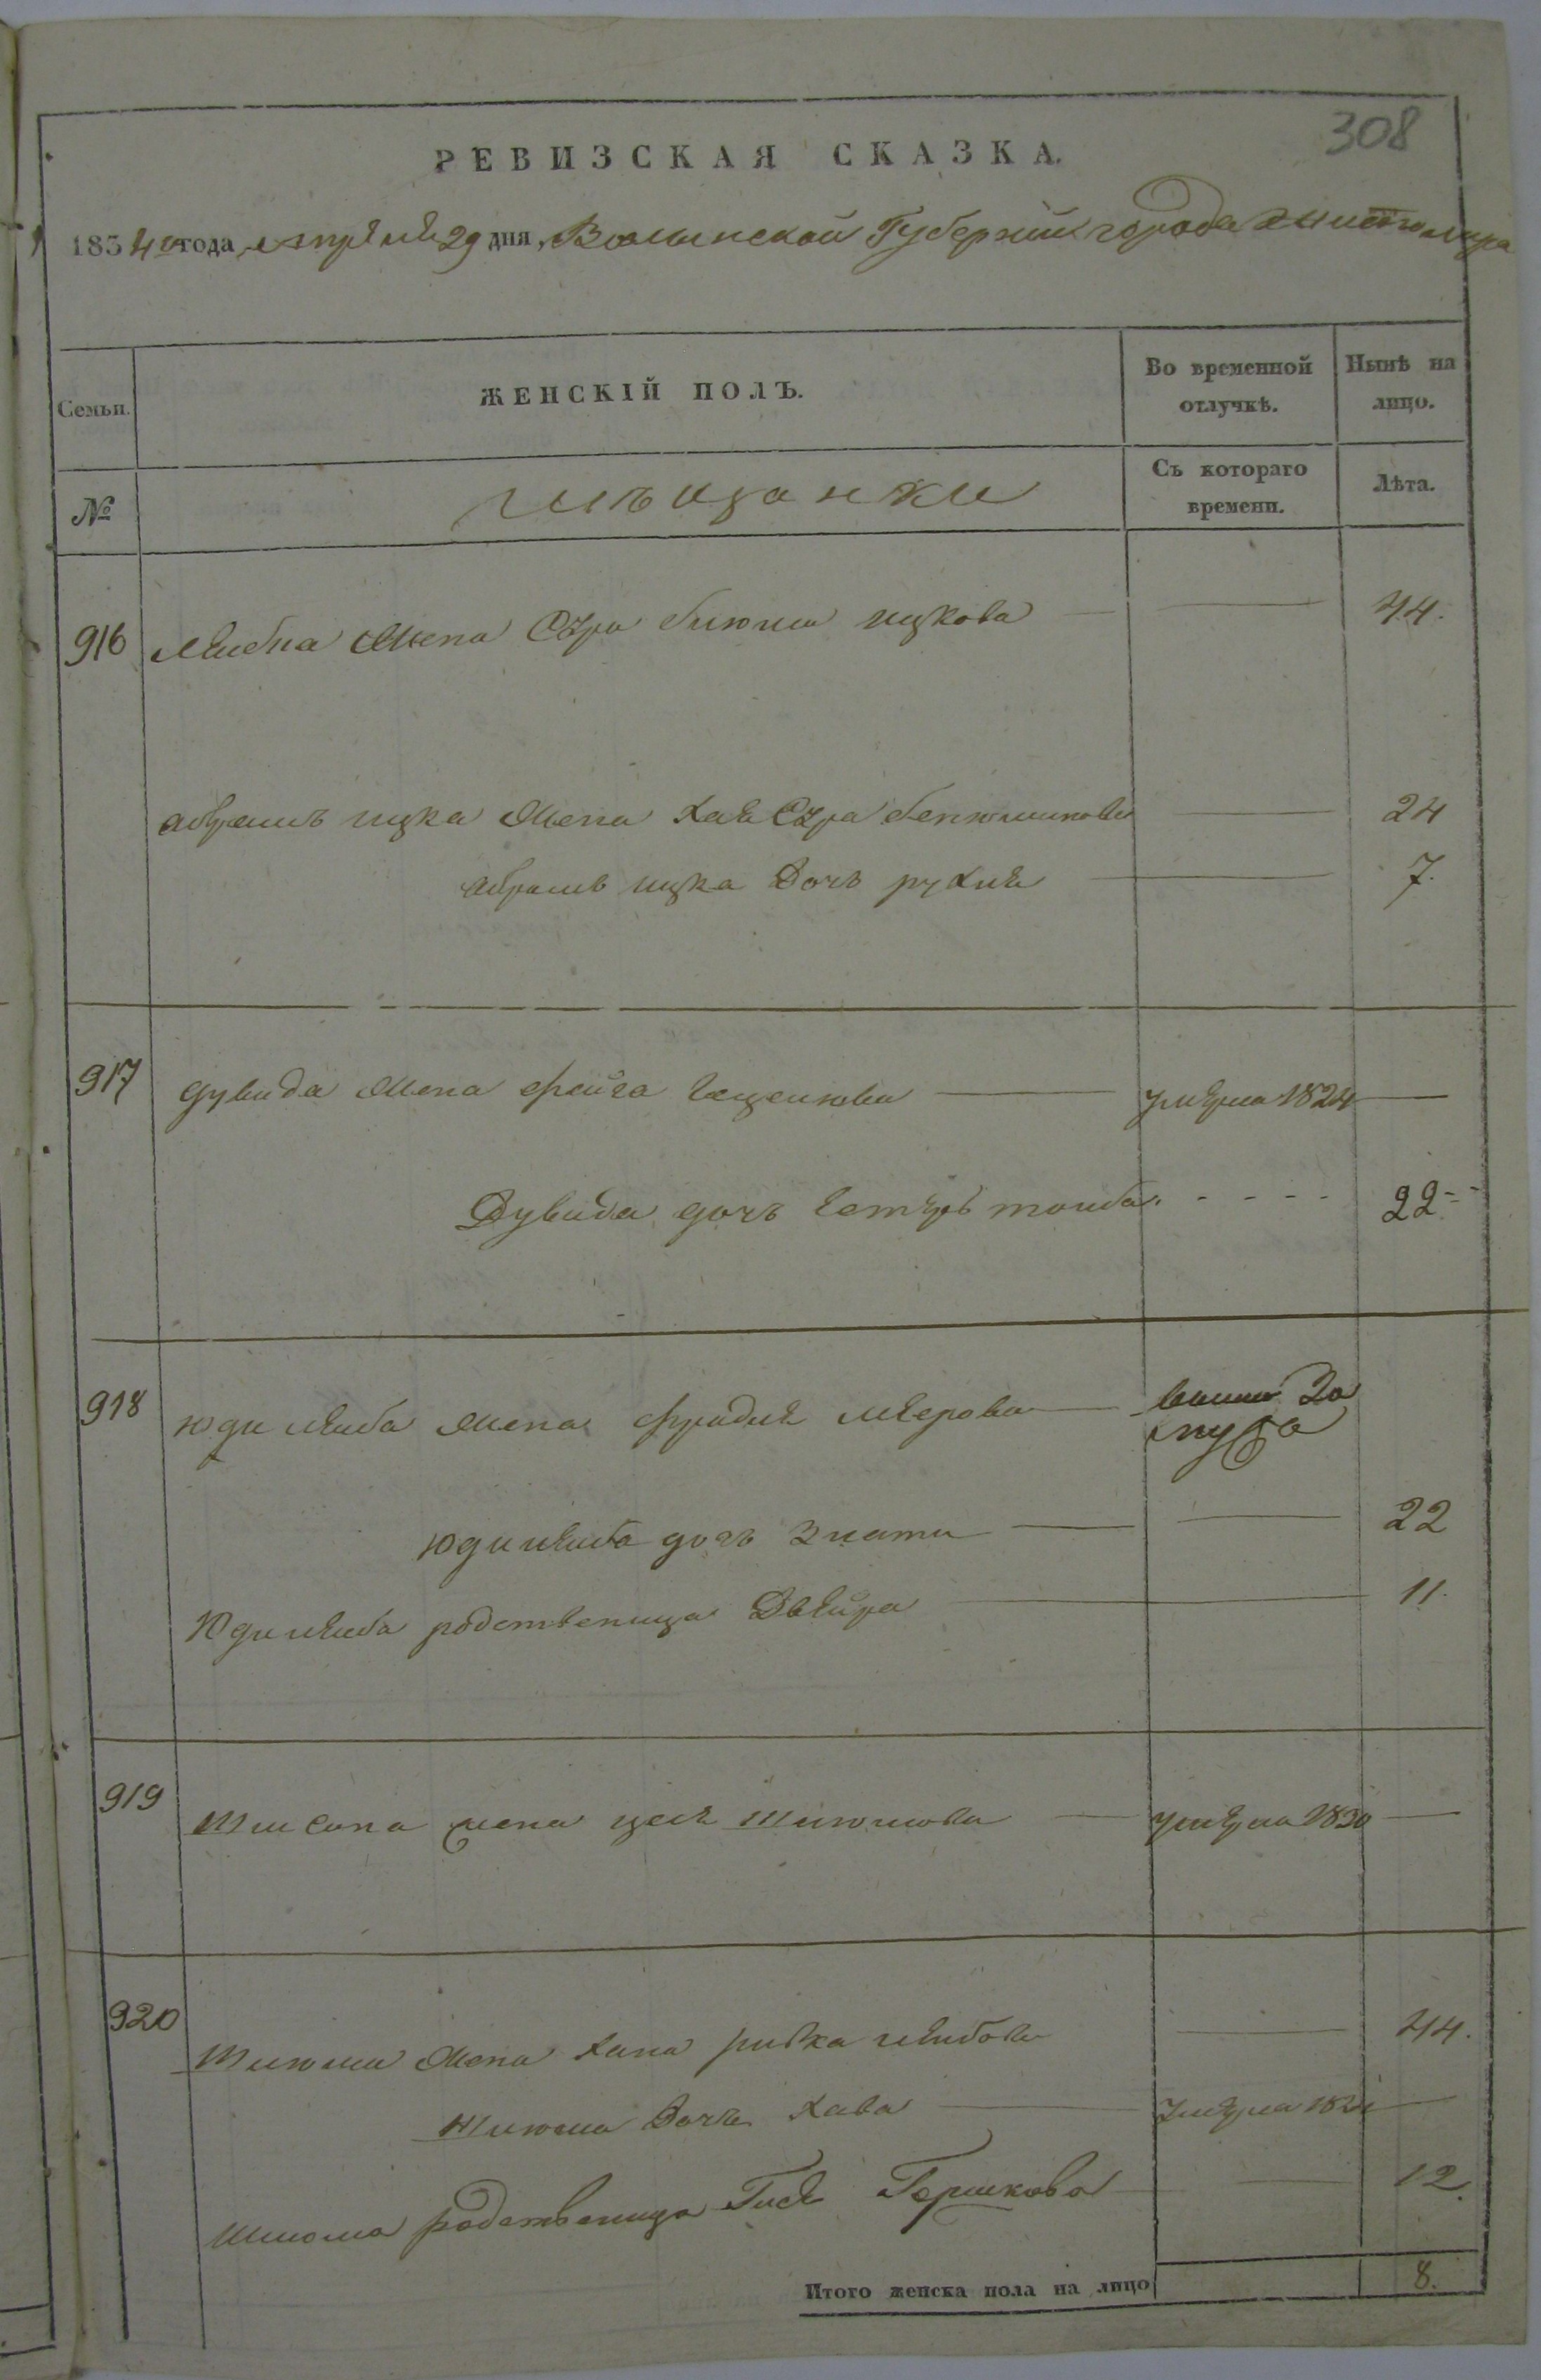 308
РЕВИЗСКАЯ СКАЗКА.
1834го года апреля 29 дня, Волынской Губернии города Житомира
Семьи.
ЖЕНСКІЙ ПОЛЪ.
Во временной отлучкѣ.
Нынѣ на лицо.
№
мѣщанки
Съ котораго времени.
Лѣта.
916 Лейбна жена Сура ицкова — — 44.
абрамъ ицка жена Хая Сура бенюминова — 24
абрамъ ицка Дочь рухля — 7.
917 дувида жена фейга — умерла 1824 —
Дувида дочь естеръ тойба - - - - 22 -
918 юди лейба жена фрадля меерова — вышла За мужъ
юди лейба дочь Злата — — 22
Юди лейба родственица Двейра — 11.
919 жена цеся — умерла 1830 —
920 Шлюма жена Хана ривка лейбова — 44.
Шлюма Дочь Хава — умерла —
Шлюма родственица Гися Гершкова — 12.
Итого женска пола на лицо 8.